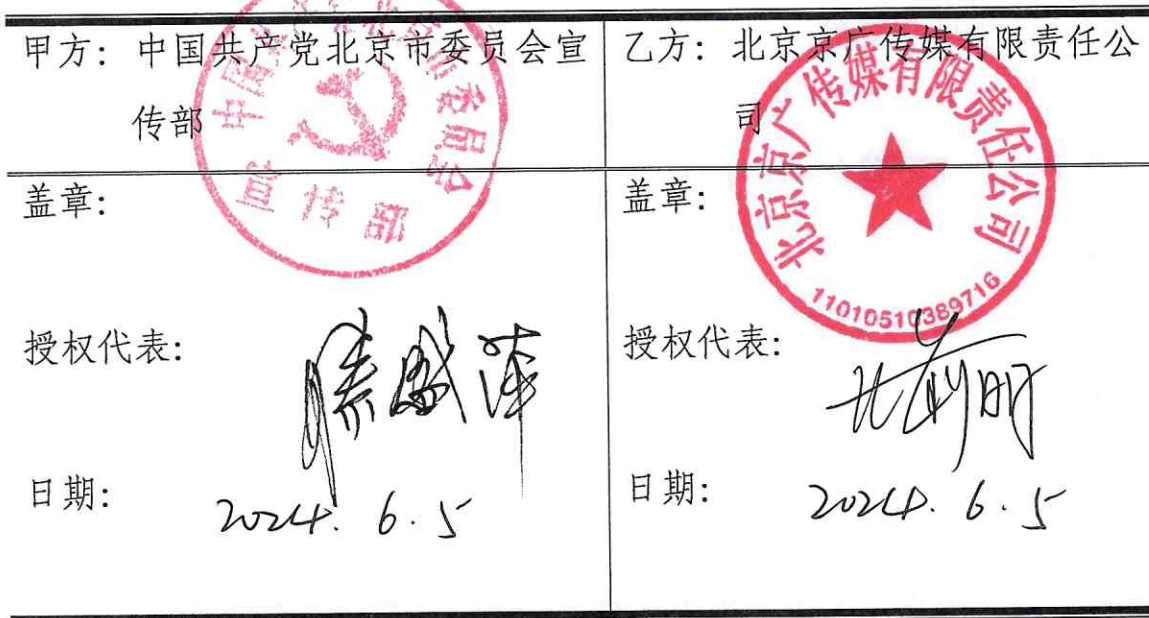 甲方：中国共产党北京市委员会宣
传部
盖章：
中国共产党北京市委员会
宣传部
授权代表：
滕盛萍
日期：
2024. 6. 5
乙方：北京京广传媒有限责任公
司
盖章：
北京京广传媒有限责任公司
11010510389716
授权代表：
日期：
2024. 6. 5